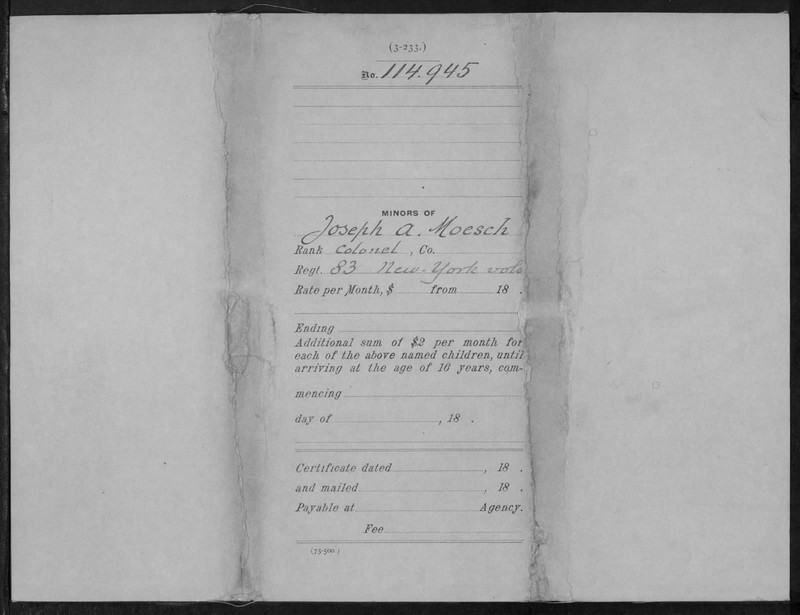 (3-233.)
No. 114.945
MINORS OF
Joseph A. Moesch
Rank Colonel , Co.
Regt. 83 New-York vols
Rate per Month, $ from 18 .
Ending
Additional sum of $2 per month for
each of the above named children, until
arriving at the age of 16 years, com-
mencing
day of , 18 .
Certificate dated , 18 .
and mailed , 18 .
Payable at Agency.
Fee
(75-500.)